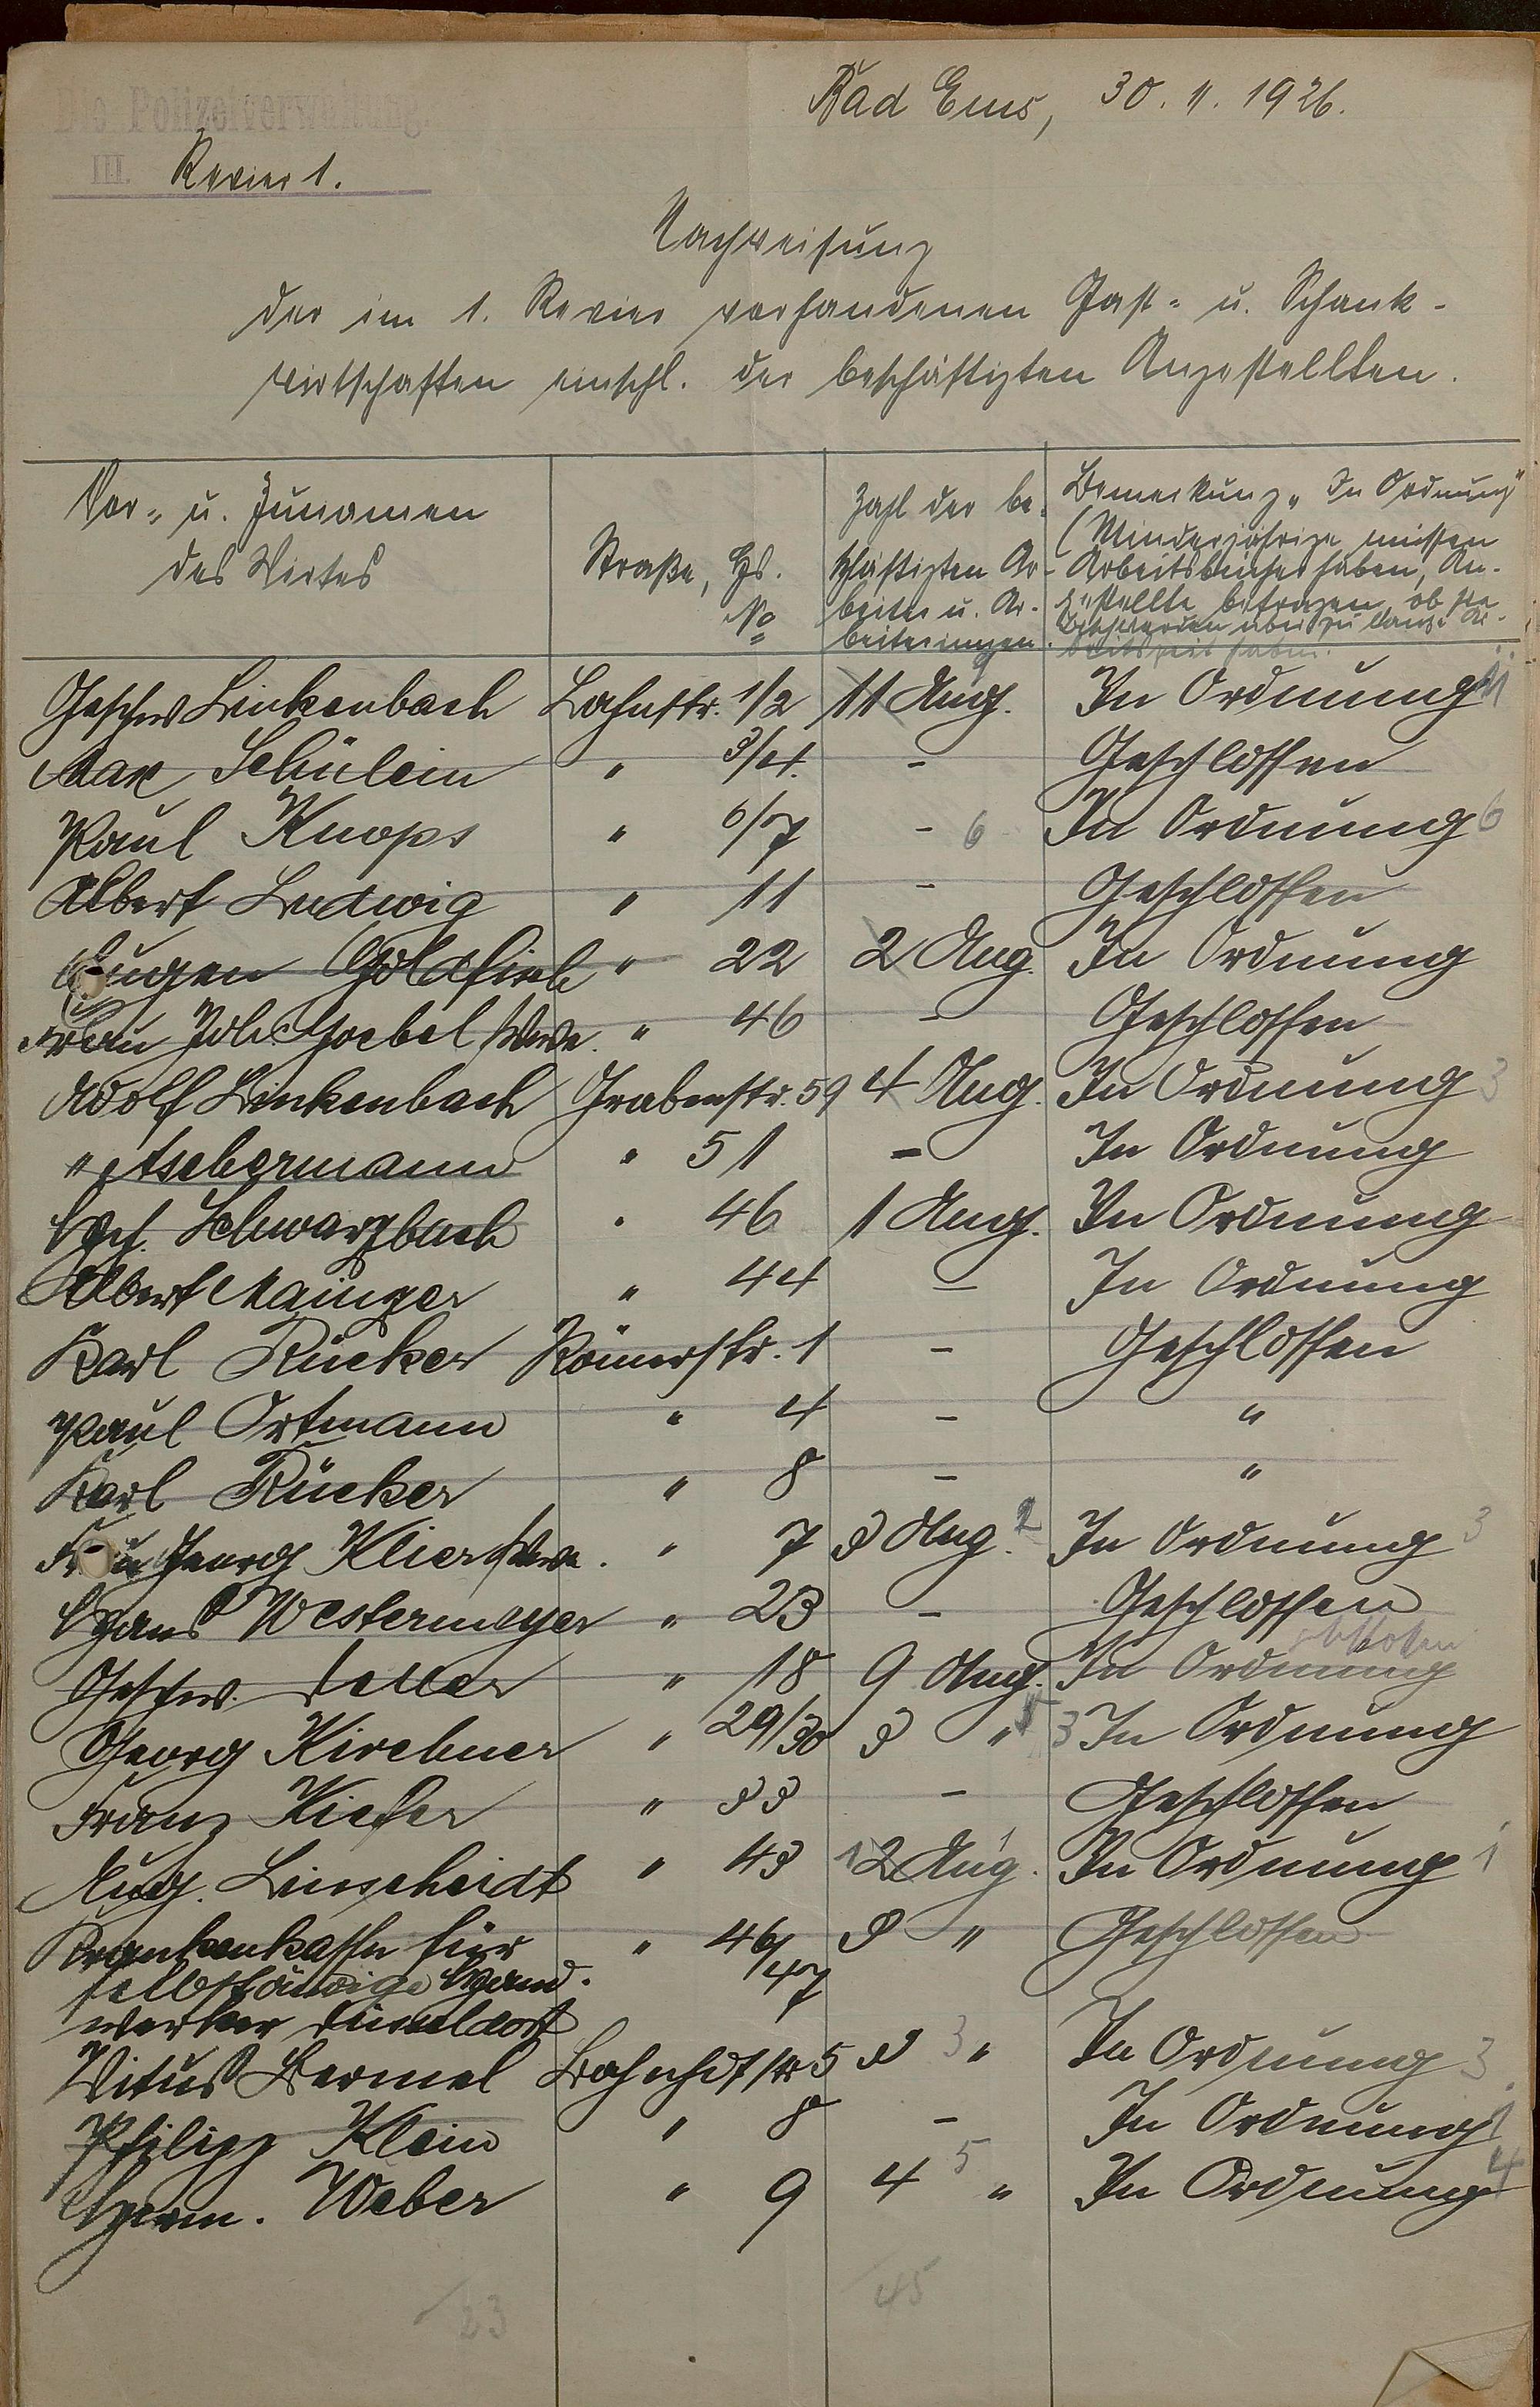 Die Polizeiverwaltung
Bad Ems, 30. 11. 1926.
III. Revier 1.
Nachweisung
der im 1. Revier vorhandenen Gast- u. Schank-
wirtschaften einschl. der beschäftigten Angestellten.
Vor- u. Zunamen des Wirtes
Straße, Hs. No
Zahl der be-
schäftigten Ar-
beiter u. Ar-
beiterinnen.
Bemerkung „In Ordnung"
(Minderjährige müssen
Arbeitsbücher haben, An-
gestellte befragen, ob sie
Beschwerden über zu lange Ar-
beitszeit haben.
Geschw. Linkenbach Lahnstr. 1/2 11 Ang. In Ordnung 11
Max Schülein " 3/4. - Geschlossen
Paul Knops " 6/7 - 6 In Ordnung 6
Albert Ludwig " 11 - Geschlossen
Eugen Goldfisch " 22 2 Ang. In Ordnung
Frau Joh. Goebel Wwe. " 46 - Geschlossen
Adolf Linkenbach Grabenstr. 59 4 Ang. In Ordnung 3
" Aschermann " 51 - In Ordnung
Hch. Schwarzbach " 46 1 Ang. In Ordnung
Albert Mainzer " 44 - In Ordnung
Karl Rücker Römerstr. 1 - Geschlossen
Paul Ortmann " 4 - "
Karl Rücker " 8 - "
Frau Georg Klier Wwe. " 7 3 Ang. 2 In Ordnung 3
Hans Westermeyer " 23 - Geschlossen
Geschw. " 18 9 Ang. In Ordnung
Georg Kirchner " 29/30 3 " 3 In Ordnung
Franz Kiefer " 33 - Geschlossen
Aug. Linscheidt " 43 12 Ang. In Ordnung 1
Krankenkasse für " 46/47 3 " Geschlossen
selbständige Hand-
werker Düsseldorf
Vitus Bermel Bahnhofstr 5 3 3 " In Ordnung 3
Philipp Klein " 8 - In Ordnung 1
Herm. Weber " 9 4 5 " In Ordnung 4
23 45